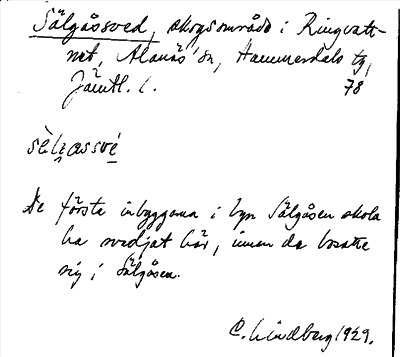 Sälgåssved, skogsområde i Ringvatt-
net, Alanäs sn, Hammerdals tg,
Jämtl. l. 78
sèl̥ɩassvé
De första inbyggarna i byn Sälgåsen skola
ha svedjat här, innan de bosatte
sig i Sälgåsen.
C. Lindberg 1929.